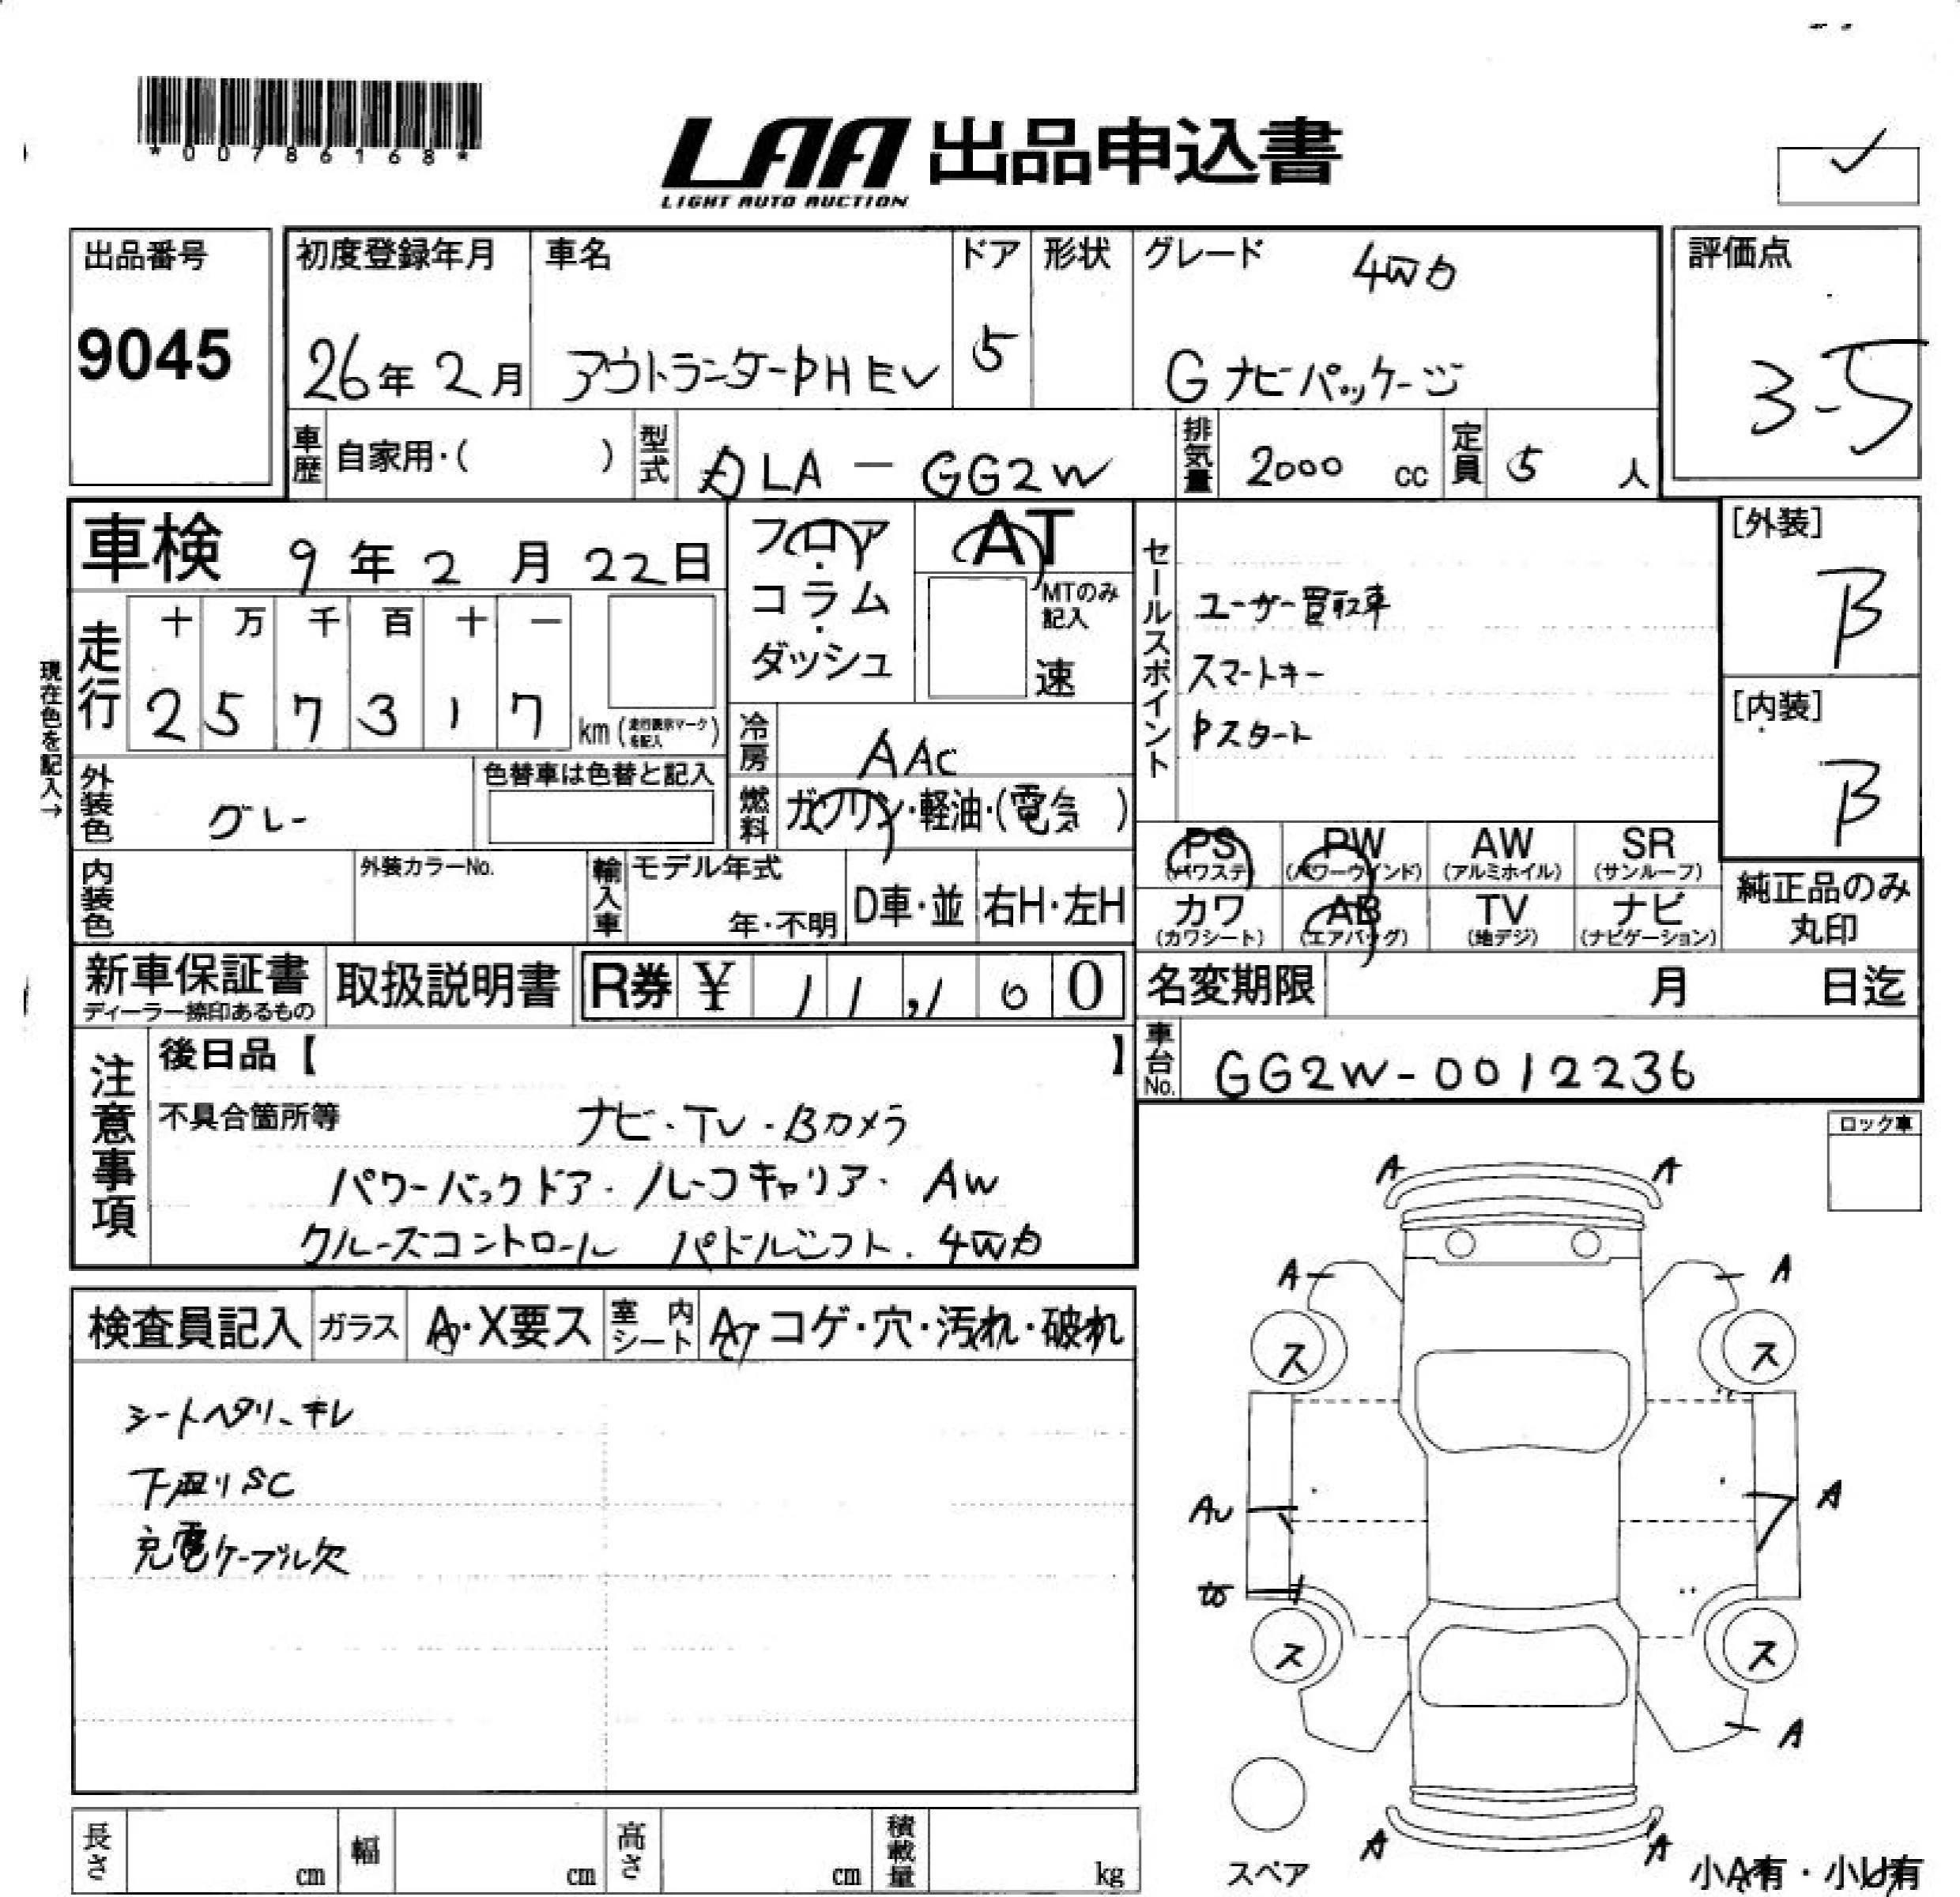 *00786168*
LAA 出品申込書
LIGHT AUTO AUCTION
出品番号
9045
初度登録年月
26年 2月
車名
アウトランダーPHEV
ドア
5
形状
グレード 4WD
G ナビパッケージ
評価点
3-5
車歴 自家用・( )
型式 DLA - GG2W
排気量 2000 cc
定員 5 人
車検 9年 2月 22日
フロア・コラム・ダッシュ
AT
MTのみ記入
速
セールスポイント
ユーザー買取車
スマートキー
Pスタート
[外装]
B
[内装]
B
現在色を記入→
走行
十 万 千 百 十 一
2 5 7 3 1 7 km (走行表示マークを記入)
冷房 AAC
外装色 グレー
色替車は色替と記入
燃料 ガソリン・軽油・(電気 )
内装色
外装カラーNo.
輸入車 モデル年式
年・不明
D車・並
右H・左H
PS (パワステ) PW (パワーウインド) AW (アルミホイル) SR (サンルーフ)
カワ (カワシート) AB (エアバッグ) TV (地デジ) ナビ (ナビゲーション)
純正品のみ
丸印
新車保証書
ディーラー捺印あるもの
取扱説明書
R券 ¥ 11,160
名変期限 月 日迄
車台No. GG2W-0012236
注意事項
後日品【 】
不具合箇所等
ナビ・TV・Bカメラ
パワーバックドア・ルーフキャリア・AW
クルーズコントロール パドルシフト・4WD
ロック車
検査員記入
ガラス A・X要ス
室内シート A・コゲ・穴・汚れ・破れ
シートヘタリ、キレ
下廻りSC
充電ケーブル欠
A A
A A
ス ス
AU A
ス ス
A
A A
スペア
小A有・小U有
長さ cm
幅 cm
高さ cm
積載量 kg